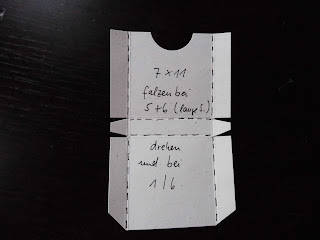 7 x 11
falzen bei
5 + 6 (lange S.)
drehen
und bei
1 / 6